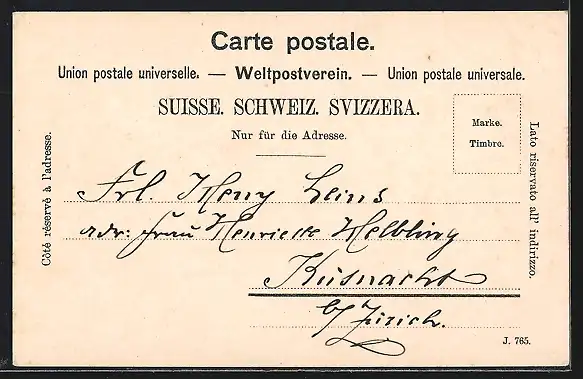 Carte postale.
Union postale universelle. — Weltpostverein. — Union postale universale.
SUISSE. SCHWEIZ. SVIZZERA.
Nur für die Adresse.
Marke.
Timbre.
Côté réservé à l'adresse.
Lato riservato all' indirizzo.
Frl. Heny Leins
adr: Frau Henriette Helbling
Küsnacht
b/Zürich.
J. 765.